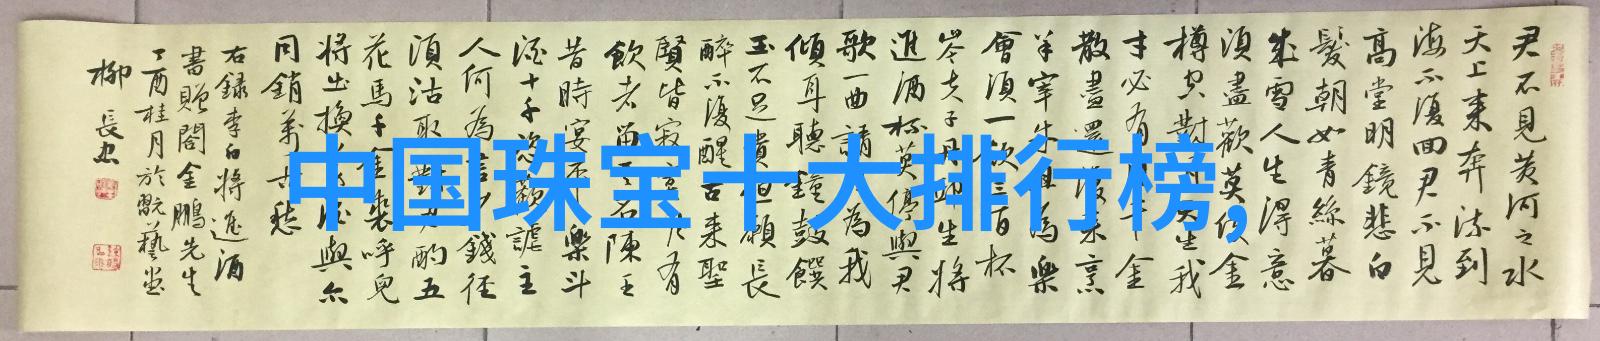 君不见黄河之水
天上来奔流到
海不復回君不見
高堂明鏡悲白
髮朝如青絲暮
成雪人生得意
須盡歡莫使金
樽空對月天生我
才必有用千金
散盡還復来烹
羊宰牛且為樂
會須一飲三百杯
岑夫子丹邱生將
進酒杯莫停與君
歌一曲請君為我
傾耳聽鐘鼓饌
玉不足貴但願長
醉不復醒古来聖
賢皆寂寞惟有
飲者留其名陳王
昔時宴平樂斗
酒十千恣歡謔主
人何為言少錢径
須沽取對君酌五
花馬千金裘呼兒
將出換美酒與尔
同銷萬古愁
右録李白將進酒
書贈閤金鵬先生
丁酉桂月於翫藝堂
柳長忠
中国珠宝十大排行榜,